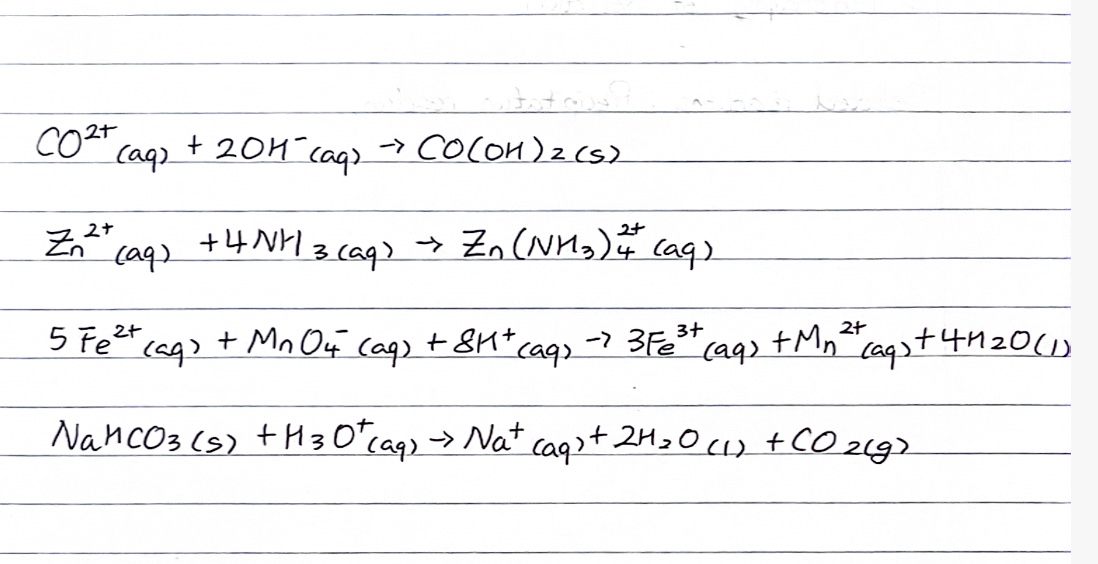 CO²⁺(aq) + 2OH⁻(aq) → CO(OH)₂(s)
Zn²⁺(aq) + 4NH₃(aq) → Zn(NH₃)₄²⁺(aq)
5Fe²⁺(aq) + MnO₄⁻(aq) + 8H⁺(aq) → 3Fe³⁺(aq) + Mn²⁺(aq) + 4H₂O(l)
NaHCO₃(s) + H₃O⁺(aq) → Na⁺(aq) + 2H₂O(l) + CO₂(g)